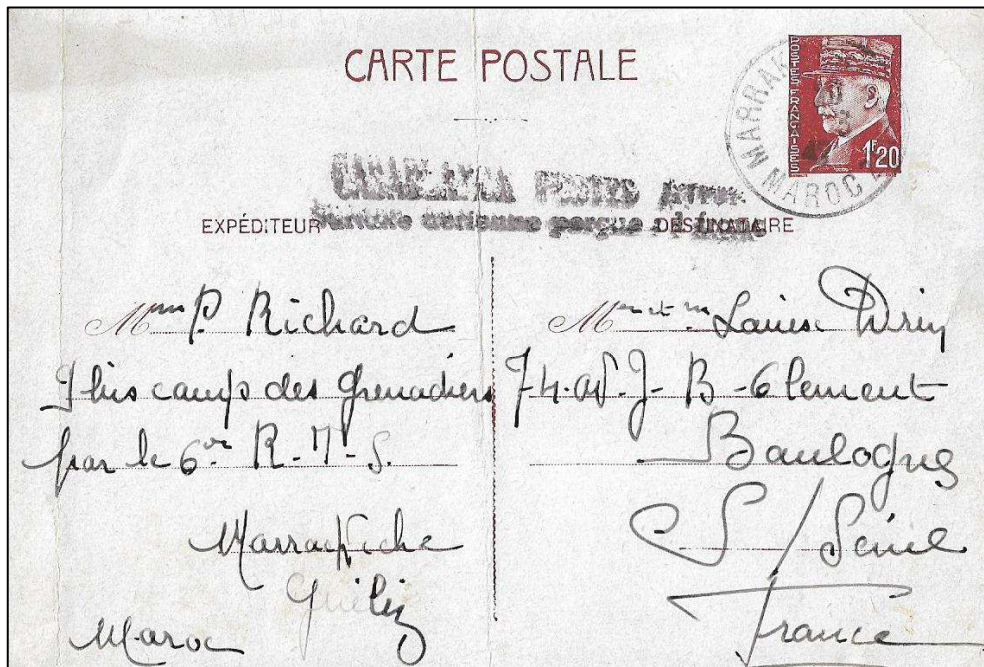 CARTE POSTALE
POSTES FRANÇAISES
1F20
MARRAK
MAROC
CASABLANCA POSTES
Surtaxe aérienne perçue
EXPÉDITEUR
DESTINATAIRE
Mme P. Richard
9 bis camp des Grenadiers
par le 6er R-T-S.
Marrakeche
Guéliz
Maroc
Mr et m Louise
74. av. J-B-Clement
Boulogne
S/Seine
France